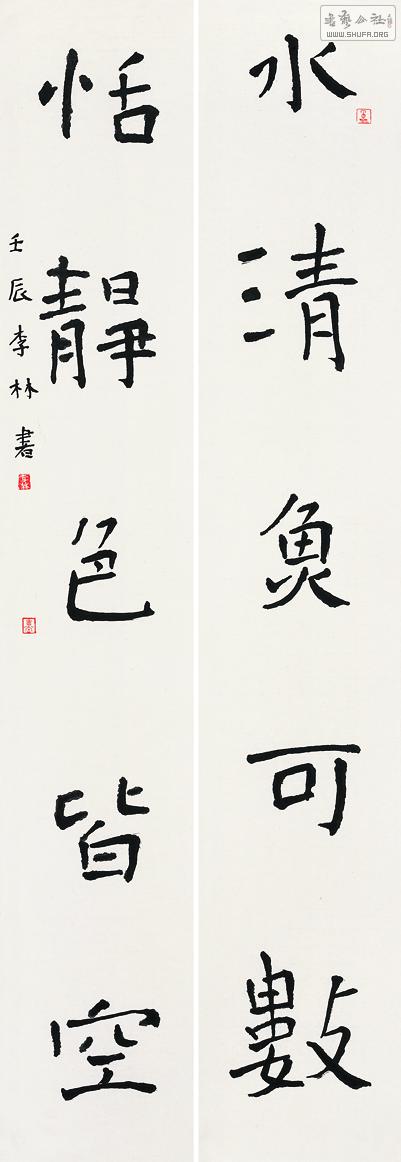 水清魚可數
恬靜色皆空
壬辰李林書
書藝公社
WWW.SHUFA.ORG